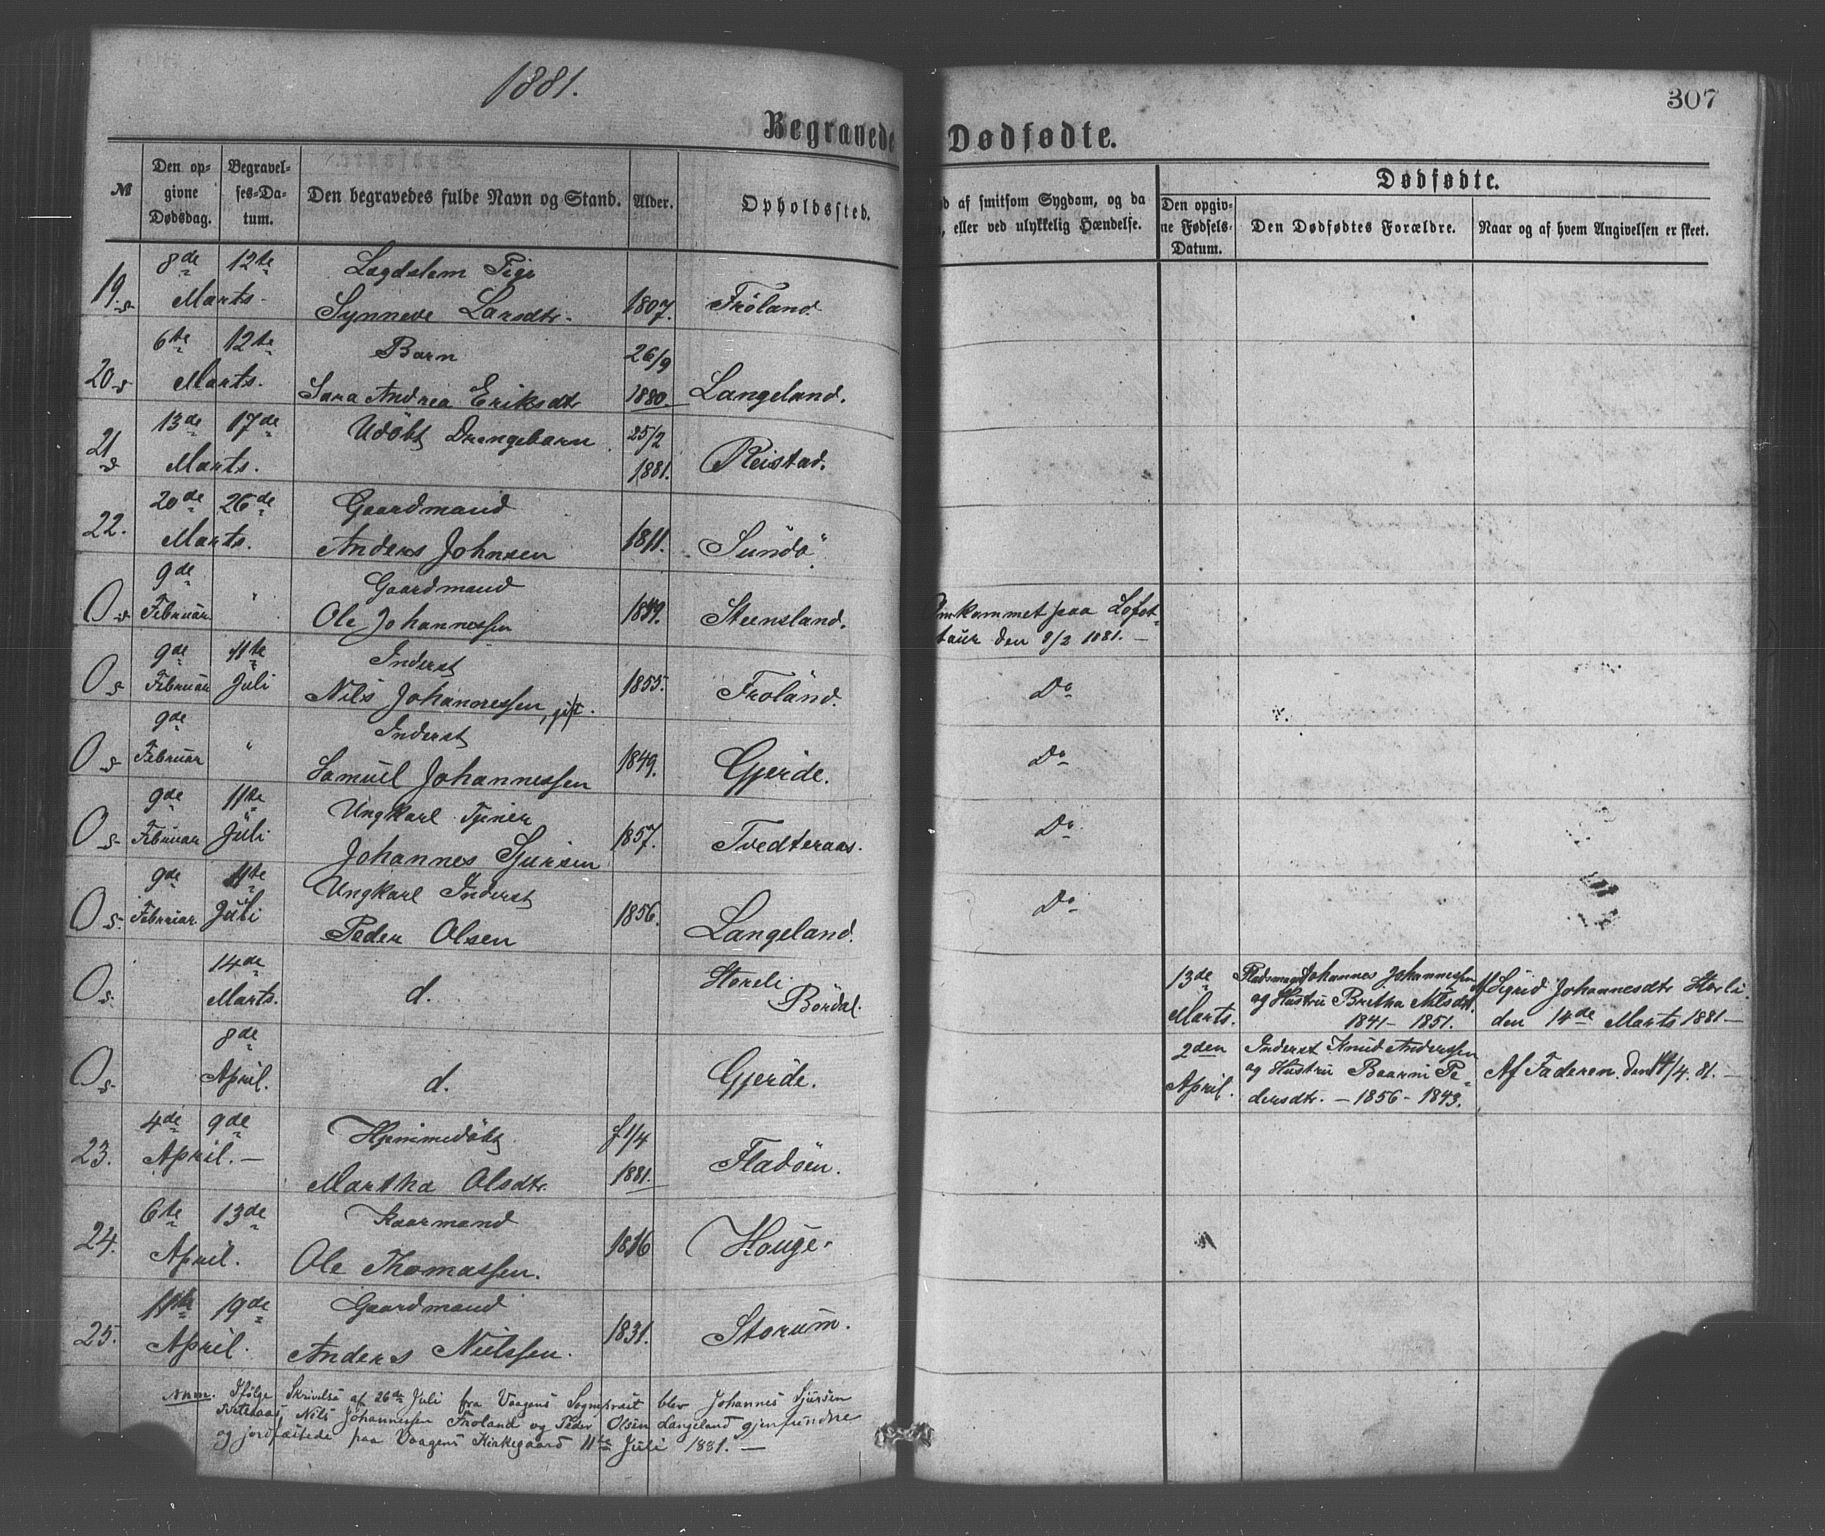 1881.
307
Begravede
Dødfødte.
№
Den opgivne Dødsdag.
Begravelses-Datum.
Den begravedes fulde Navn og Stand.
Alder.
Opholdssted.
d af smitsom Sygdom, og da
, eller ved ulykkelig Hændelse.
Dødfødte.
Den opgivne Fødsels-Datum.
Den Dødfødtes Forældre.
Naar og af hvem Angivelsen er skeet.
19. s 8de 12te Marts. Lægdslem Pige
Synneve Larsdtr. 1807. Fröland.
20 s 6te 12te Marts. Barn 26/9
Sara Andrea Eriksdtr 1880. Langeland.
21 s 13de 17de Marts. Udöbt Drengebarn 25/2
1881. Reistad.
22. 20de 26de Marts. Gaardmand
Anders Johnsen 1811. Sundö.
O s 9de Februar " Gaardmand
Ole Johannessen 1849. Steensland. Omkommet paa Lofot-
taur den 9/2 1881. —
O s 9de Februar 11te Juli Inderst
Nils Johannessen, gift. 1855. Froland. Do
O s 9de Februar " Inderst
Samuel Johannessen 1849. Gjerde. Do
O s 9de Februar 11te Juli Ungkarl Tjener
Johannes Sjursen 1857. Tvedteraas. Do
O s. 9de Februar 11te Juli Ungkarl Inderst
Peder Olsen 1856. Langeland. Do
O s. 14de Marts. d. Storeli
Bördal. 13de Marts. Pladsmand Johannes Johannessen
og Hustru Britha Nilsdtr.
1841 — 1851. Af Sigrid Johannesdtr Storli
den 14de Marts 1881 —
O s 8de April. d. Gjerde. 2den April. Inderst Knud Anderssen
og Hustru Baarni Pe-
dersdtr. — 1856 - 1843. Af Faderen. den 14/4. 81. —
23. 4de 9de April. — Hjemmedöbt f 1/4
Martha Olsdtr. 1881. Fladöen.
24. 6te 13de April. Kaarmand
Ole Thomassen. 1816 Houge.
25. 11te 19de April. Gaardmand
Anders Nielssen. 1831. Storum.
Anm. Ifölge Skrivelse af 26de Juli fra Vaagens Sognepræst blev Johannes Sjursen
Tvedteraas, Nils Johannessen Froland og Peder Olsen Langeland gjenfundne
og jordfæstede paa Vaagens Kirkegaard 11te Juli 1881. —